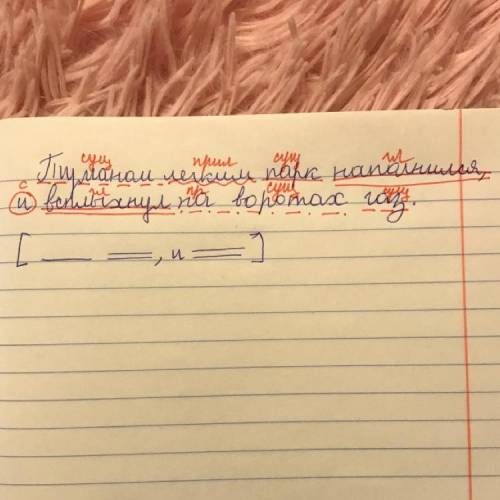 сущ прил сущ гл
Туманом легким парк наполнился,
с гл пр сущ сущ
и вспыхнул на воротах газ.
[ ___ ===, и === ]